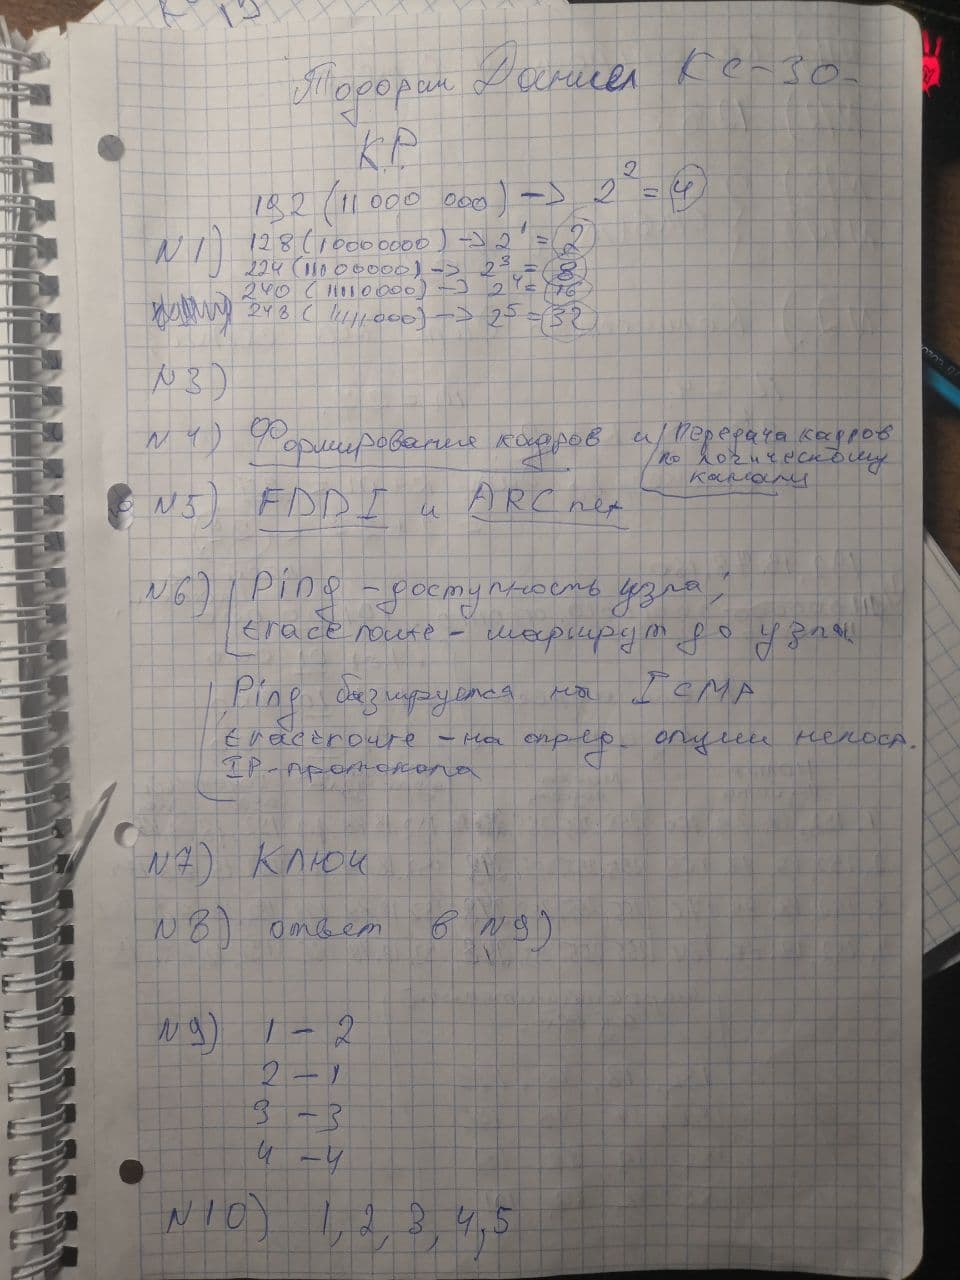 Тодоран Даниел КС-30-
К.Р.
192 (11000 000) -> 2² = 4
N1) 128 (10000000) -> 2¹ = 2
224 (11100000) -> 2³ = 8
240 (11110000) -> 2⁴ = 16
248 (11111000) -> 2⁵ = 32
N3)
N4) Формирование кадров и Передача кадров
по логическому
каналу
N5) FDDI и ARCnet
N6) Ping - доступность узла;
traceroute - маршрут до узла.
Ping базируется на ICMP
traceroute - на опред. опции непоср.
IP-протокола
N7) Ключ
N8) ответ в N9)
N9) 1 - 2
2 - 1
3 - 3
4 - 4
N10) 1, 2, 3, 4, 5